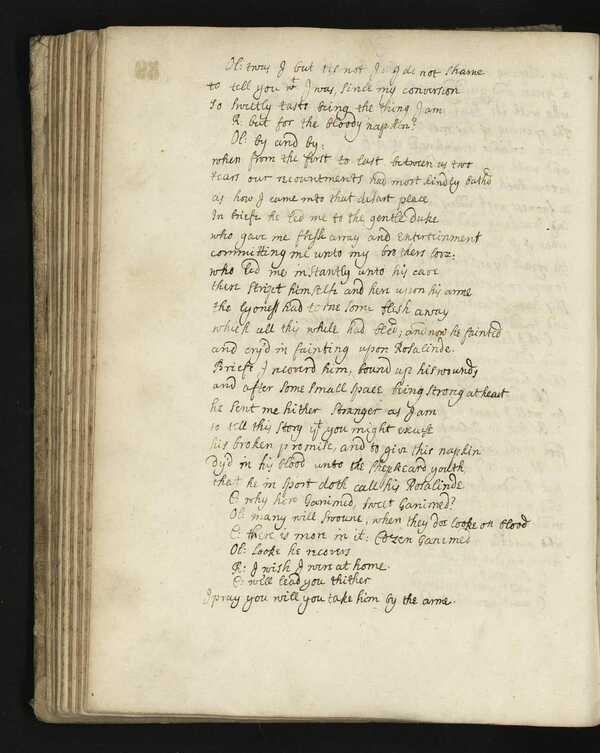 Ol: twas I but tis not I: I do not shame
to tell you wt I was, since my conversion
So sweetly tasts being the thing I am
R. but for the bloody napkin?
Ol: by and by:
when from the first to last betwixt us two
tears our recountments had most kindly bathd
as how I came into that desart place
In briefe he led me to the gentle duke
who gave me fresh array and Entertainment
committing me unto my brothers love:
who led me instantly unto his cave
there stript himselfe and here upon his arme
the Lyoness had torne some flesh away
which all this while had bled; and now he fainted
and cry'd in fainting upon Rosalinde.
Briefe I recoverd him, bound up his wounds
and after some small space being strong at heart
he sent me hither stranger as I am
to tell this story yt you might excuse
his broken promise, and to give this napkin
dy'd in his blood unto the Shepheard youth
that he in sport doth call his Rosalinde
C: why here Ganimed, sweet Ganimed?
Ol: many will swoune, when they doe looke on blood
C: there is more in it: Cozen Ganimed
Ol: Looke he recovers
R: I wish I were at home.
C: will lead you thither
I pray you will you take him by the arme.